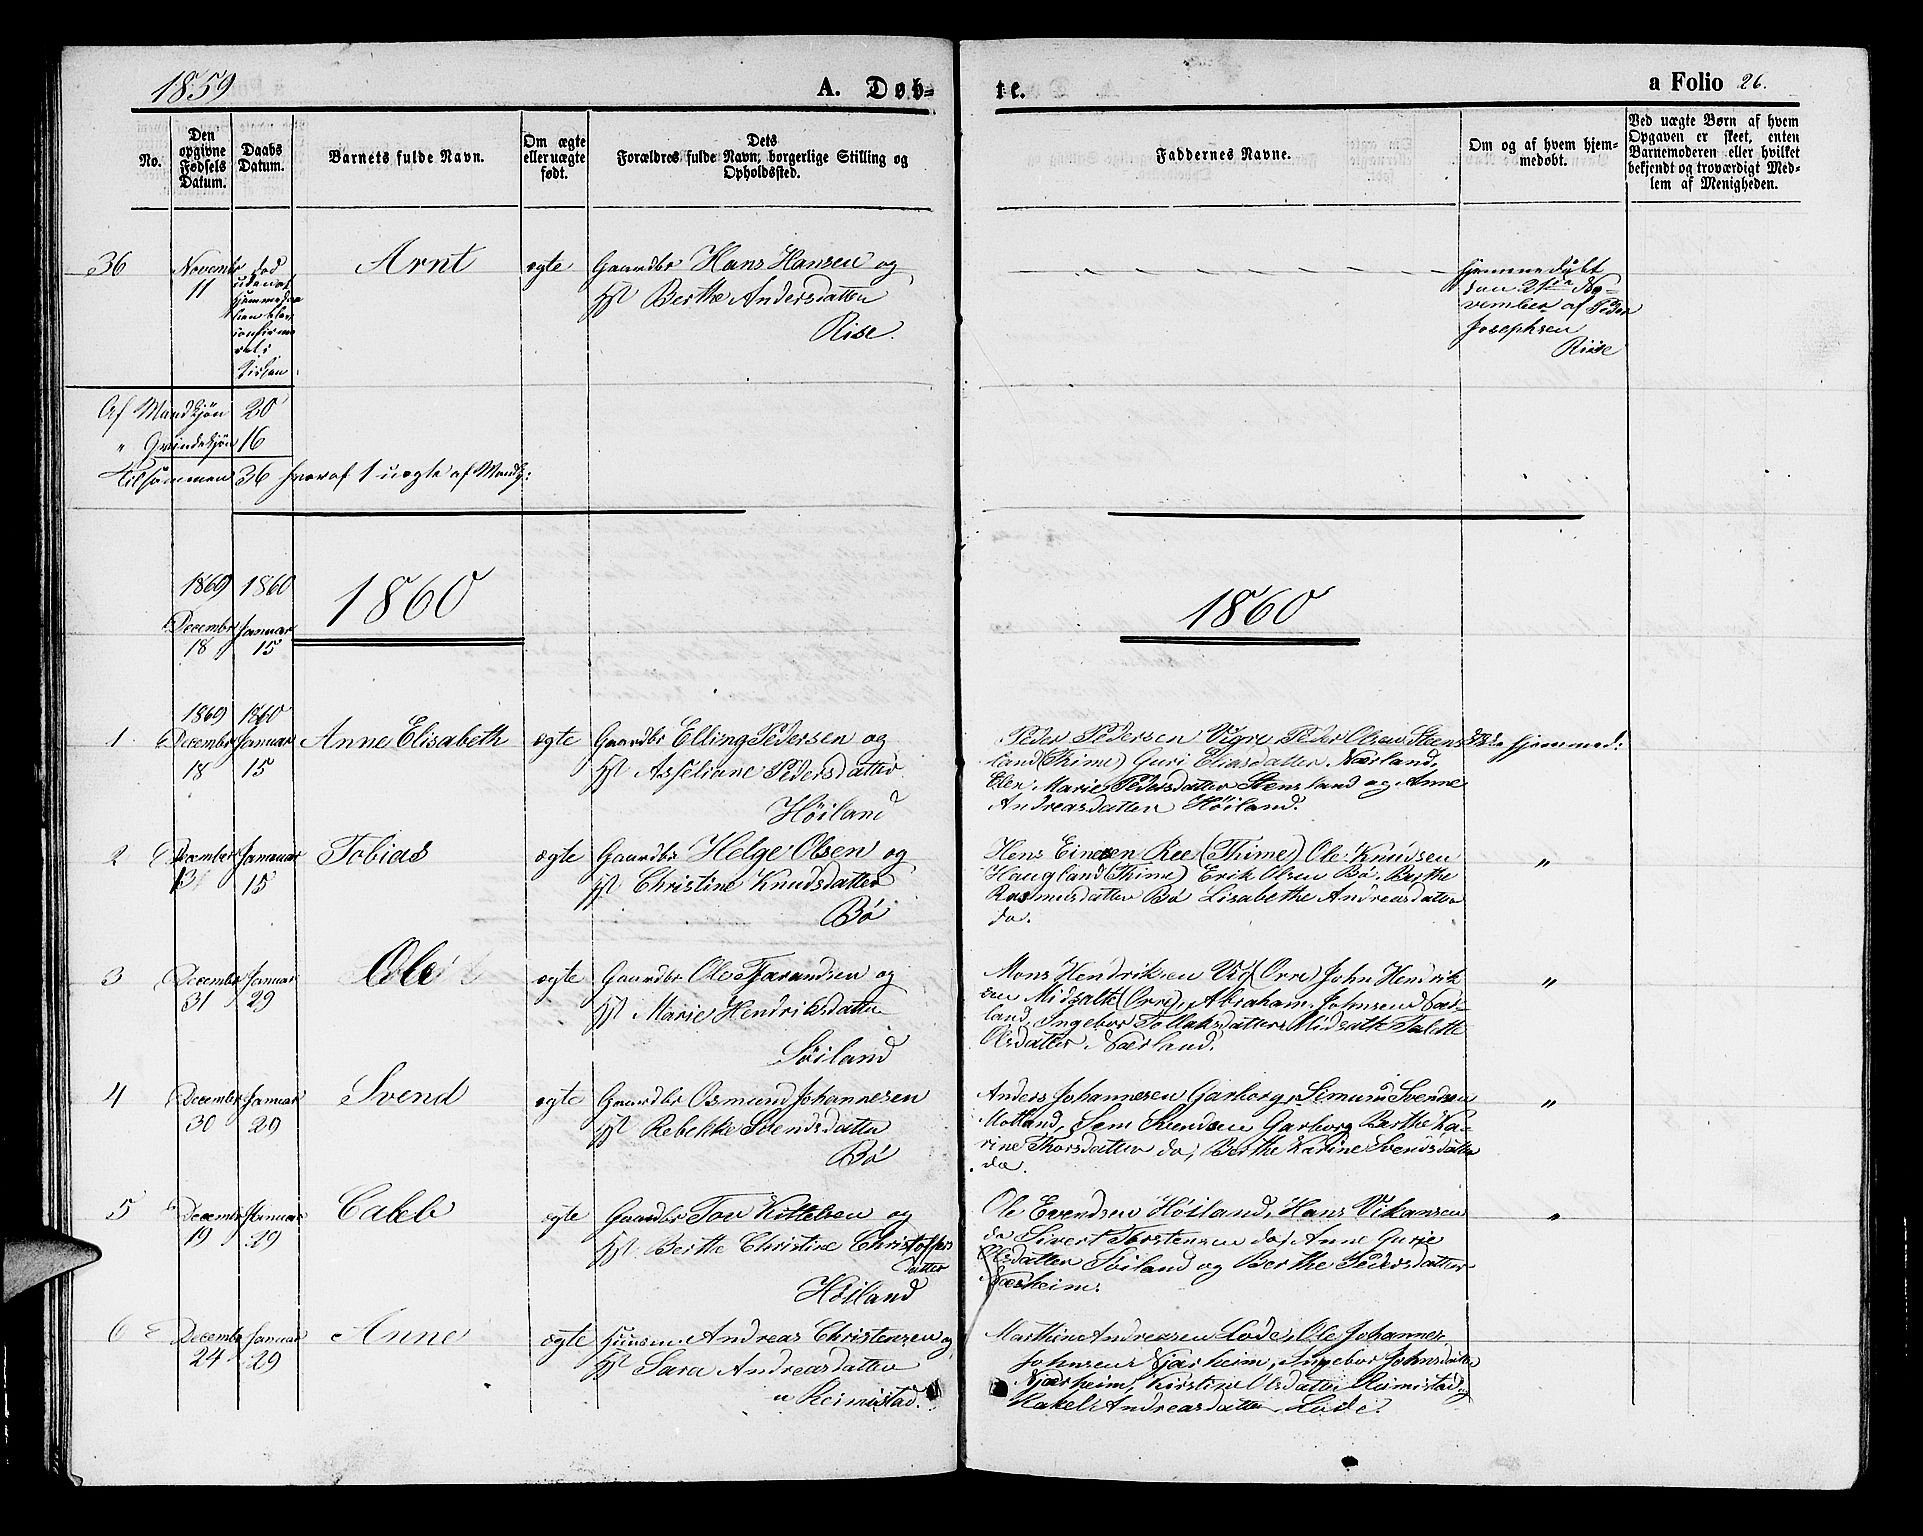 1859
A. Døb=
te.
a Folio 26.
No.
Den opgivne Fødsels Datum.
Daabs Datum.
Barnets fulde Navn.
Om ægte eller uægte født.
Dets Forældres fulde Navn, borgerlige Stilling og Opholdssted.
Faddernes Navne.
Om og af hvem hjem-
medøbt.
Ved uægte Børn af hvem
Opgaven er skeet, enten
Barnemoderen eller hvilket
bekjendt og troværdigt Med-
lem af Menigheden.
36 Novembr død Arnt ægte Gaardbr Hans Hansen og
11 uden at
hjemmedaa
ben blev
confirme
ret i
Kirken
Hst Berthe Andersdatter
Rise.
hjemmedøbt
den 21de No-
vember af Peder
Josephsen
Riise
Af Mandkjøn 20
" Qvindekjøn 16
Tilsammen 36 hvoraf 1 uægte af Mandkj:
1869 1860
1860
1860
Decembr Januar
18 15
1869 1860
1 Decembr Januar Anne Elisabeth ægte Gaardbr Elling Pedersen og
18 15 Hst Asseliane Pedersdatter
Høiland
Peder Pedersen Vigre Peder Olsen Steens
land (Thime) Guri Eliasdatter Nærland,
Elen Marie Pedersdatter Stensland og Anne
Andreasdatter Høiland.
hjemmed:
2 December Januar Tobias ægte Gaardbr Helge Olsen og
13 15 Hst Christine Knudsdatter
Bø
Hens Einersen Ree (Thime) Ole Knudsen
Haugland (Thime) Erik Olsen Bø, Berthe
Rasmusdatter Bø Lisabethe Andreasdatter
do.
"
3 December Januar Ole ægte Gaardbr Ole Tarandsen og
31 29 Hst Marie Hendriksdatter
Søiland
Mons Hendriksen Vig (Orre) John Hendrik
sen Midgatte (Orre), Abraham Johnsen Nær-
land, Ingebor Tollaksdatter Midgatte Talette
Olsdatter Nærland.
"
4 December Januar Svend ægte Gaardbr Osmund Johannesen
30 29 Hst Rebekke Svendsdatter
Bø
Anders Johannesen Garborg, Simund Svendsen
Motland, Sem Svendsen Garborg Berthe Ka-
rine Thorsdatter do, Berthe Karine Svendsdatter
do.
"
5 December Januar Caleb ægte Gaardbr Tov Kittelsen og
19 29 Hst Berthe Christine Christoffers
datter
Høiland
Ole Evendsen Høiland, Hans Vikansen
do Sivert Torstensen do, Anne Gurie
Olsdatter Søiland og Berthe Pedersdatter
Nærheim.
"
6 Decembr Januar Anne ægte Huusm. Andreas Christensen og
24 29 Hst Sara Andreasdatter
Reimestad.
Marthine Andreasen Lode, Ole Johannes
Johnsen Njærheim, Ingebor Johnsdatter
Njærheim, Kirstine Olsdatter Reimestad og
Rakel Andreasdatter Lode.